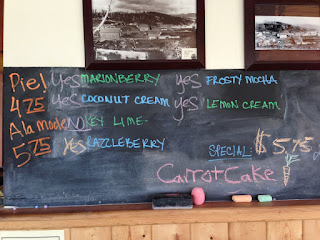 Pie! yes MARIONBERRY yes FROSTY MOCHA
4.75 yes COCONUT CREAM yes LEMON CREAM
Ala mode NO KEY LIME-
5.75 yes RAZZLEBERRY
SPECIAL: $5.75
Carrot Cake